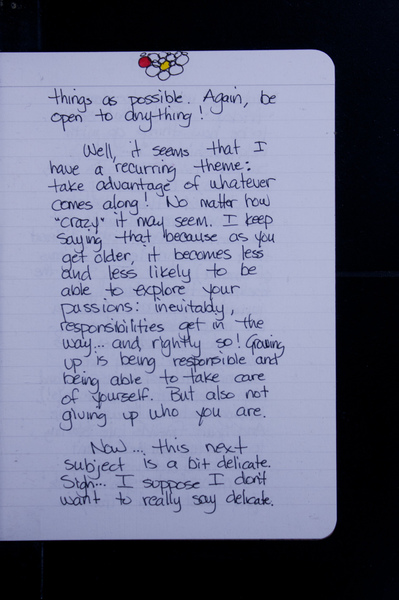 things as possible. Again, be
open to anything!
Well, it seems that I
have a recurring theme:
take advantage of whatever
comes along! No matter how
"crazy" it may seem. I keep
saying that because as you
get older, it becomes less
and less likely to be
able to explore your
passions: inevitably,
responsibilities get in the
way... and rightly so! Growing
up is being responsible and
being able to take care
of yourself. But also not
giving up who you are.
Now... this next
subject is a bit delicate.
Sigh... I suppose I don't
want to really say delicate.